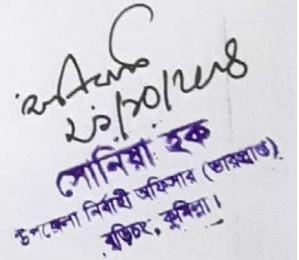 ২১/১০/২০২৪
সোনিয়া হক
উপজেলা নির্বাহী অফিসার (ভারপ্রাপ্ত)
বুড়িচং, কুমিল্লা।